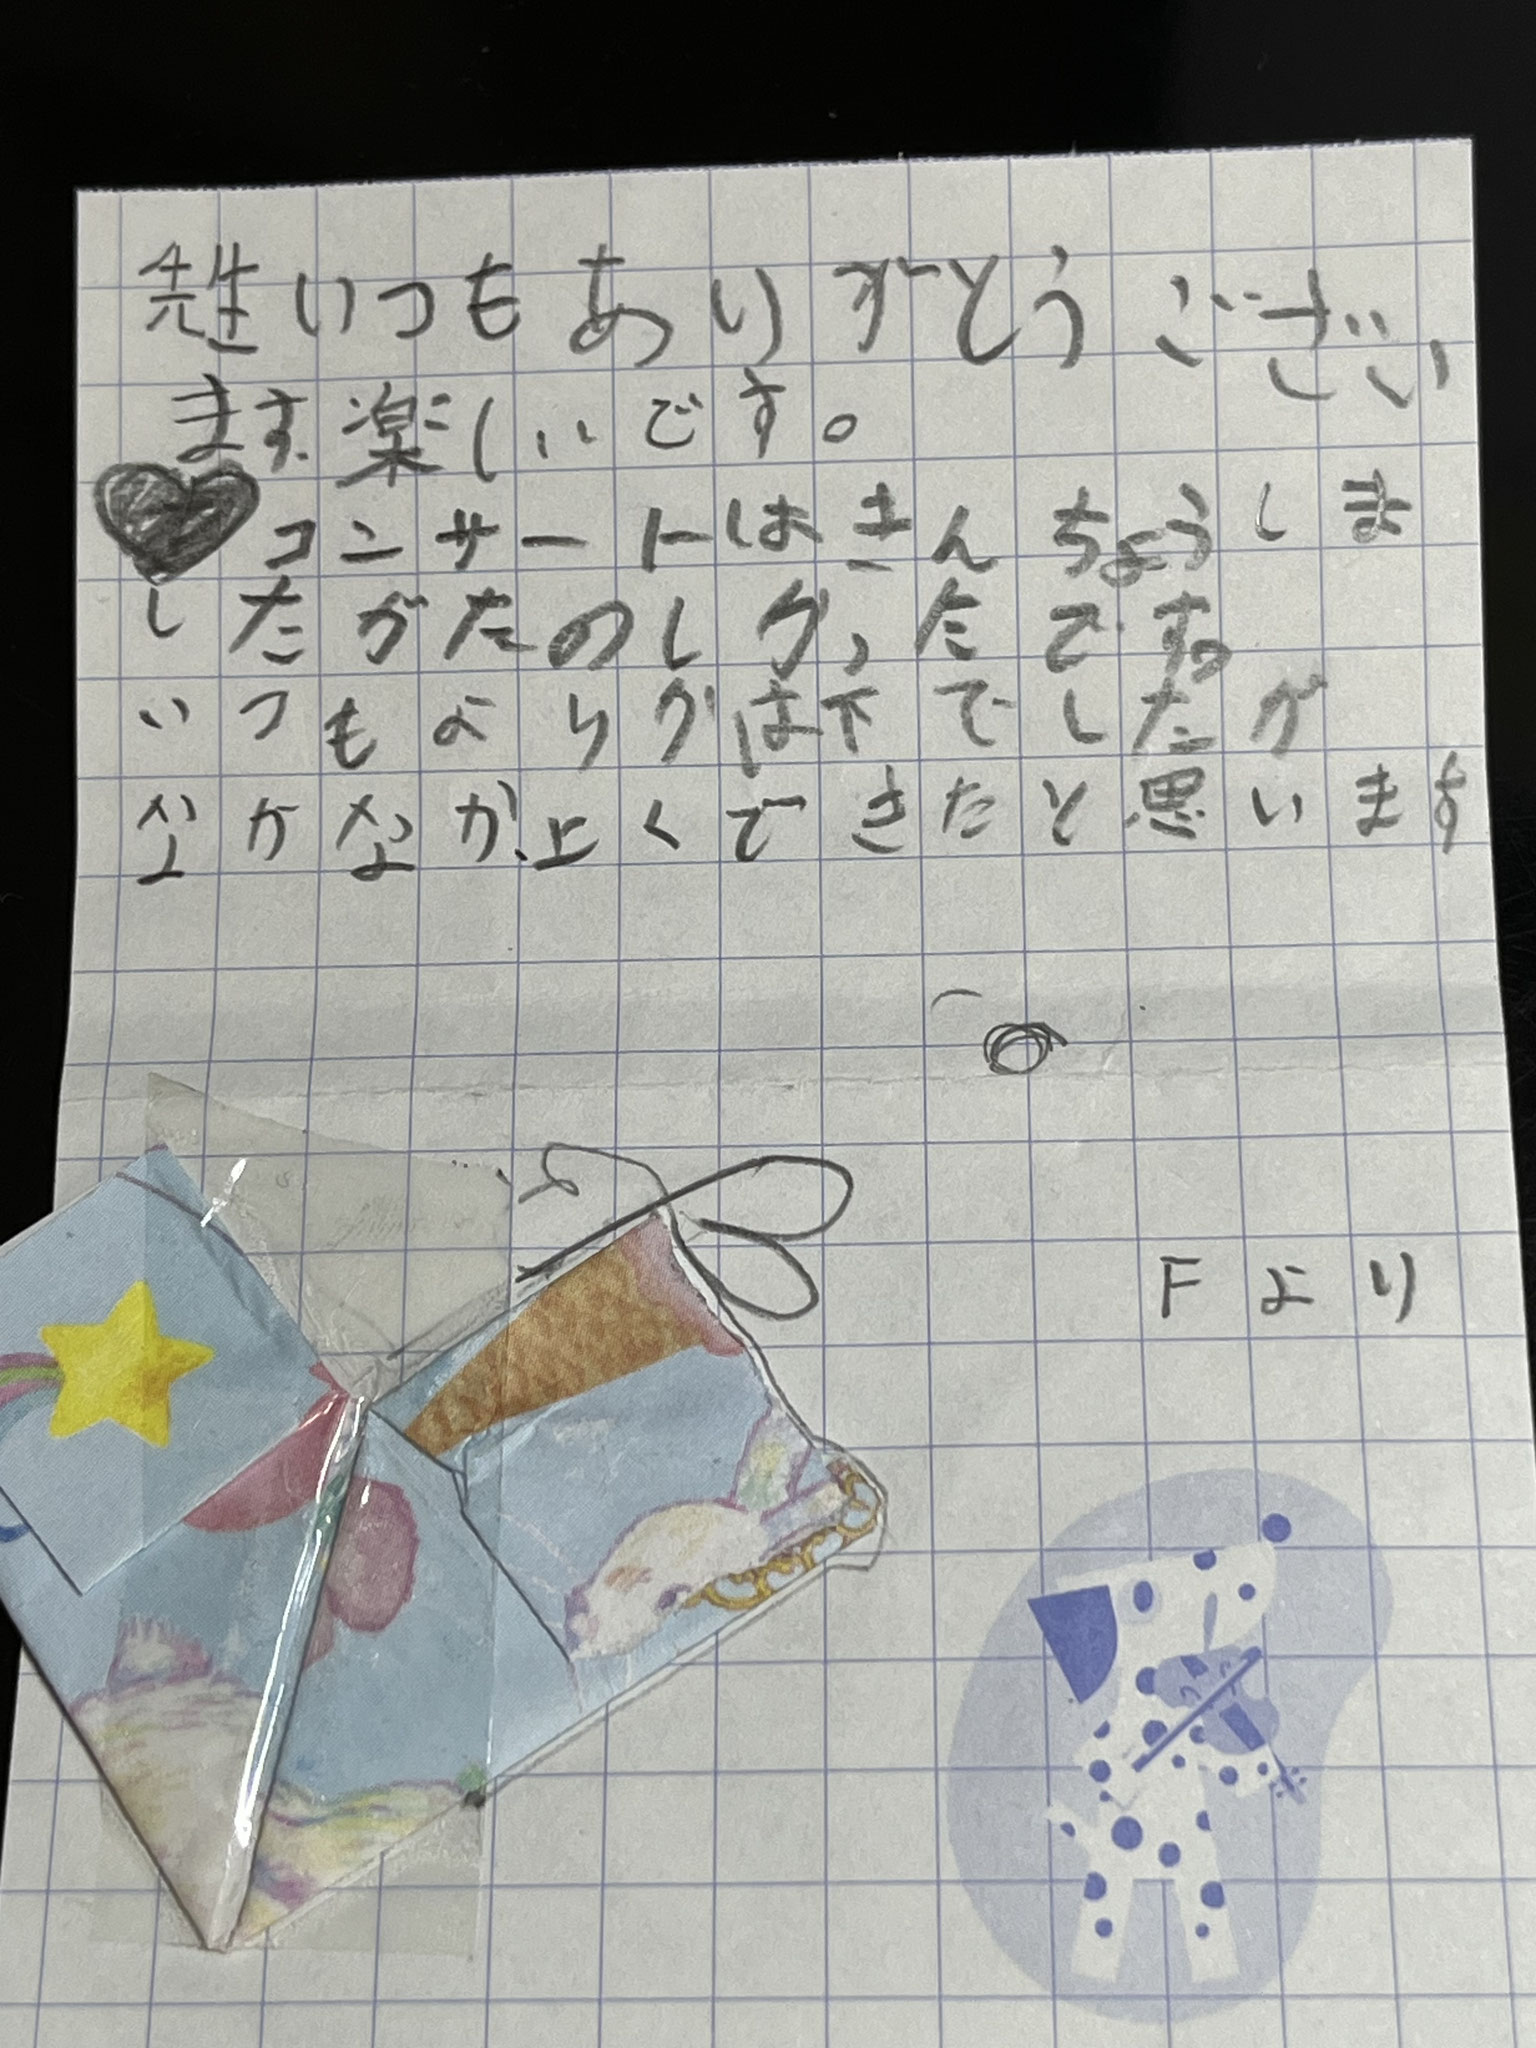 先生いつもありがとうござい
ます。楽しいです。
コンサートはきんちょうしま
したがたのしかったです。
いつもよりかは下でしたが
なかなか上くできたと思います
。
Fより